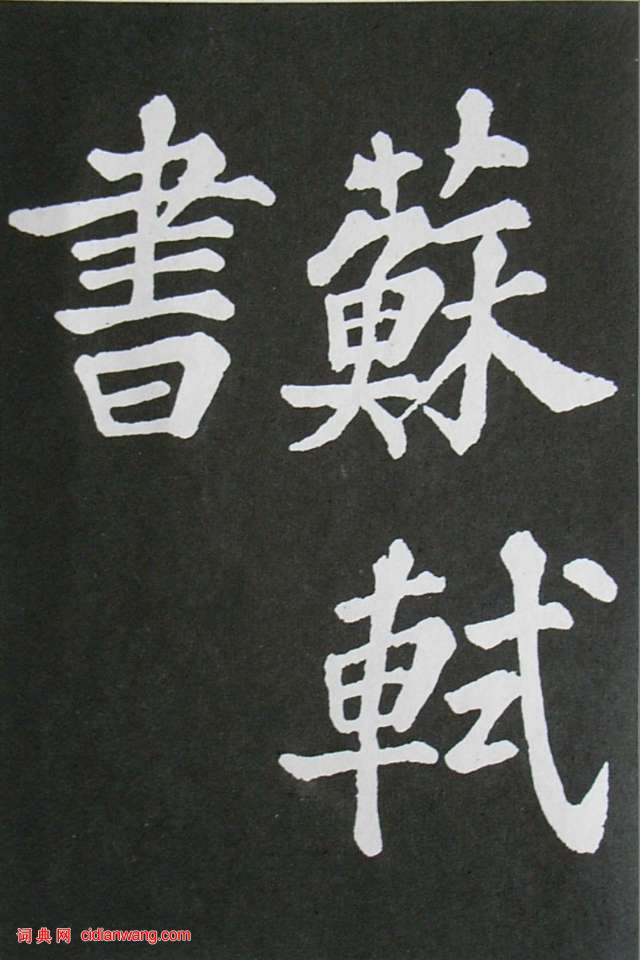 蘇軾
書
词典网 cidianwang.com